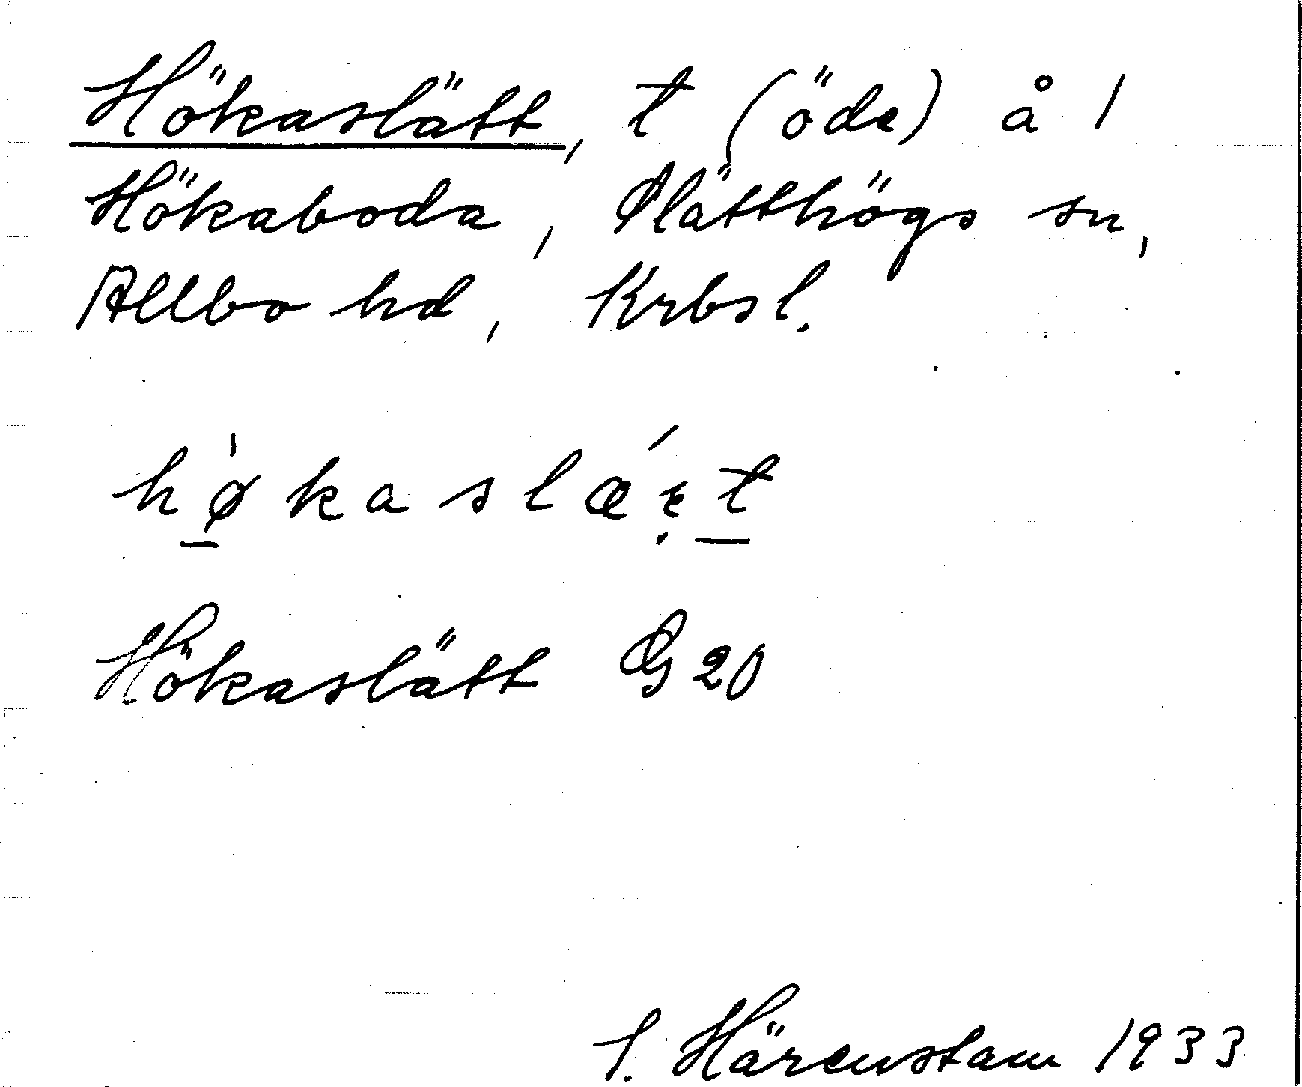 Hökaslätt, t (öde) å 1
Hökaboda, Slätthögs sn,
Allbo hd, Krbsl.
hø̀kaslǽt
Hökaslätt G 20
I. Härenstam 1933